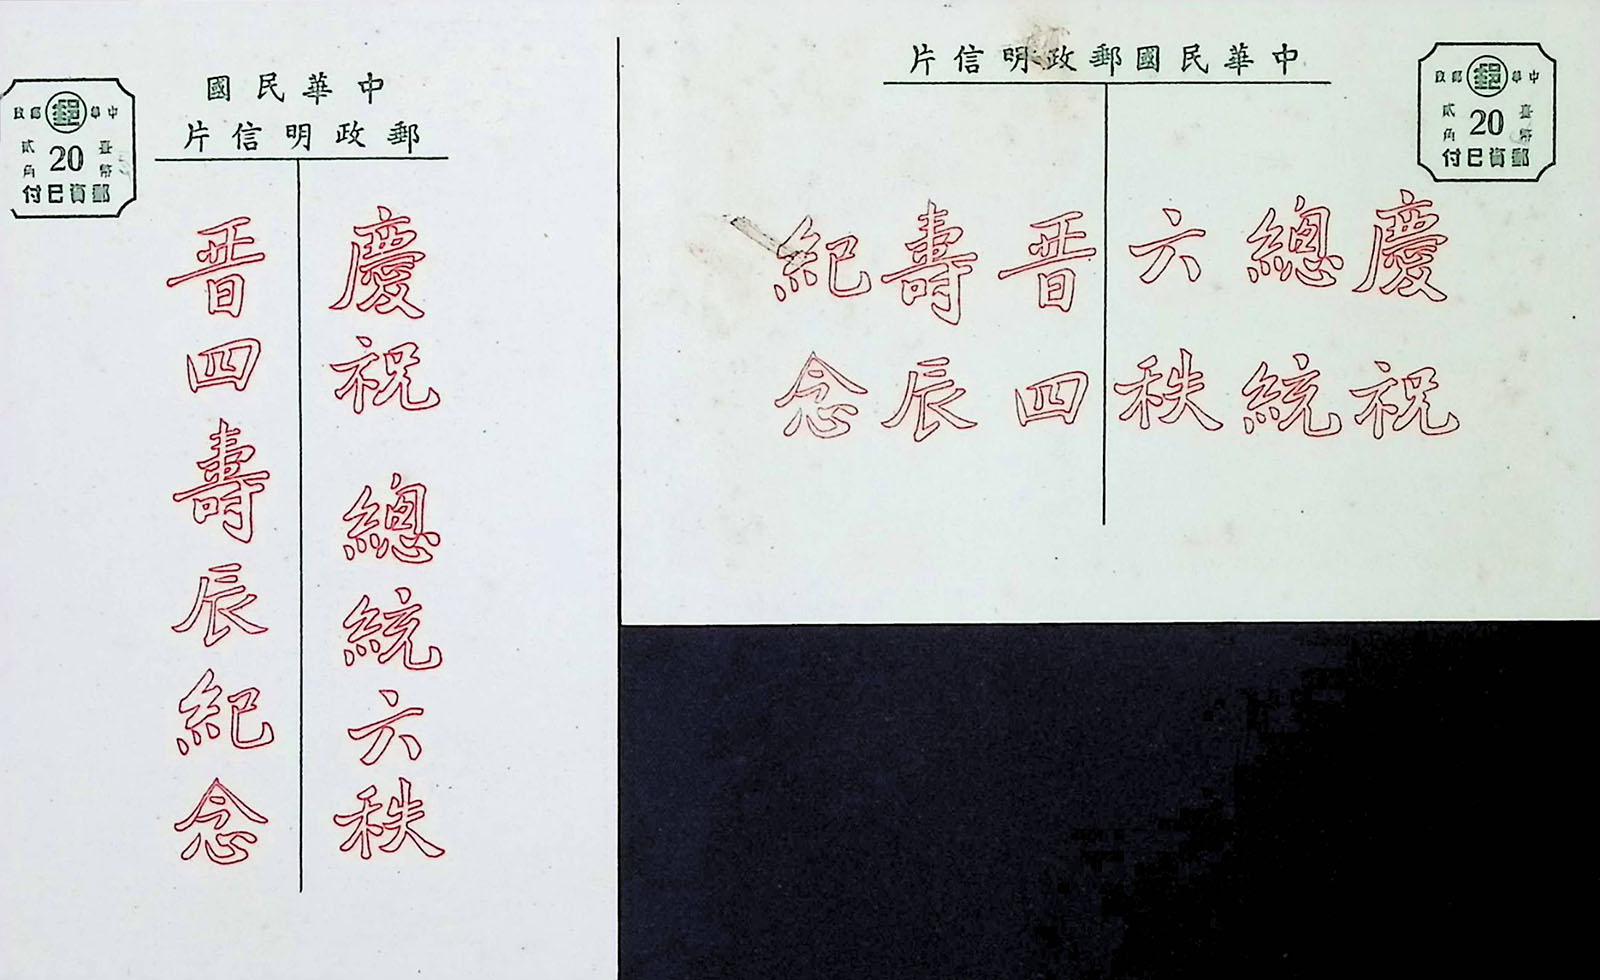 中華民國
郵政明信片
中華 郵 郵政
臺幣 20 貳角
郵資已付
慶祝 總統六秩
晋四壽辰紀念
中華民國郵政明信片
中華 郵 郵政
臺幣 20 貳角
郵資已付
慶祝
總統
六秩
晋四
壽辰
紀念